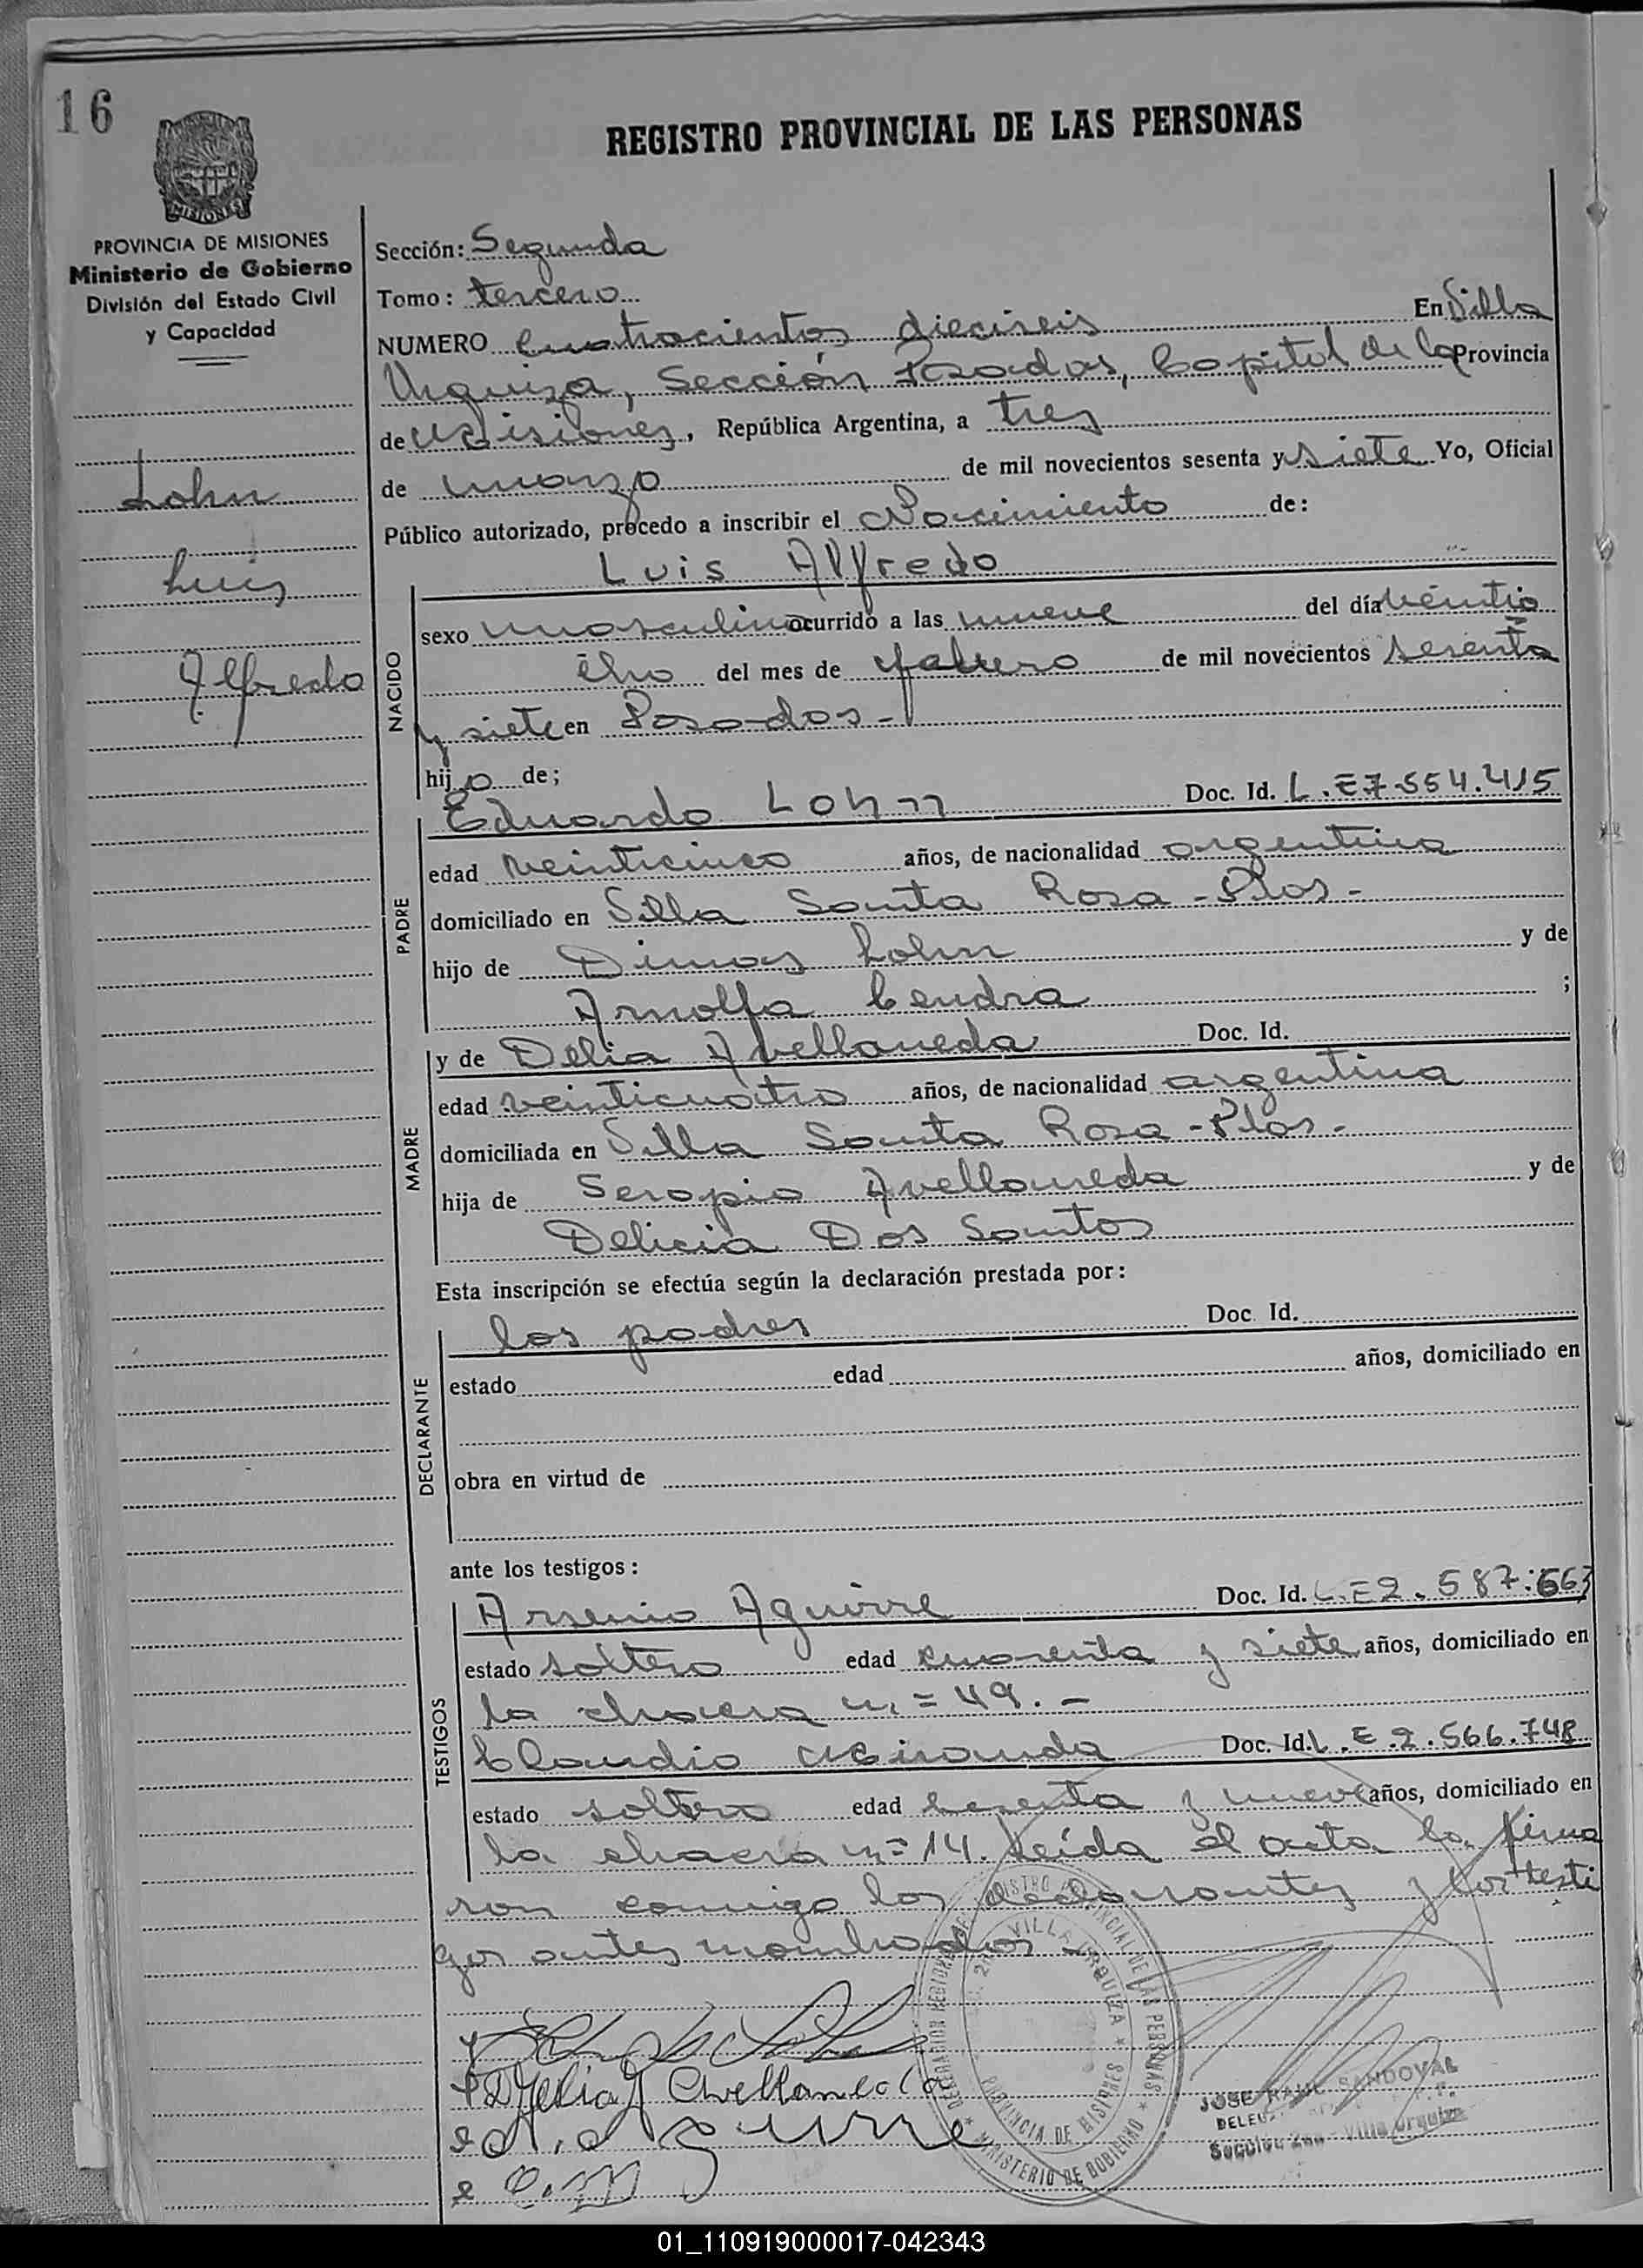 16
REGISTRO PROVINCIAL DE LAS PERSONAS
MISIONES
PROVINCIA DE MISIONES
Ministerio de Gobierno
División del Estado Civil
y Capacidad
Lohn
Luis
Alfredo
Sección: Segunda
Tomo: tercero
NUMERO Cuatrocientos dieciseis En Villa
Urquiza, Sección Posadas, Capital de la Provincia
de Misiones, República Argentina, a tres
de marzo de mil novecientos sesenta y siete Yo, Oficial
Público autorizado, procedo a inscribir el Nacimiento de:
Luis Alfredo
NACIDO
sexo masculino ocurrido a las nueve del día veintio
cho del mes de febrero de mil novecientos sesenta
y siete en Posadas-
hijo de;
PADRE
Eduardo Lohn Doc. Id. L.E 7.554.415
edad veinticinco años, de nacionalidad argentina
domiciliado en Villa Santa Rosa - Pdas-
hijo de Dimas Lohn y de
Arnolfa Cendra ;
MADRE
y de Delia Avellaneda Doc. Id.
edad veinticuatro años, de nacionalidad argentina
domiciliada en Villa Santa Rosa - Pdas.-
hija de Serapio Avellaneda y de
Delicia Dos Santos
Esta inscripción se efectúa según la declaración prestada por:
DECLARANTE
los padres Doc. Id.
estado edad años, domiciliado en
obra en virtud de
ante los testigos:
TESTIGOS
Arsenio Aguirre Doc. Id. L.E 2.587.663
estado soltero edad cuarenta y siete años, domiciliado en
la chacra n.= 49.-
Claudio Miranda Doc. Id. L.E.2.566.748
estado soltero edad sesenta y nueve años, domiciliado en
la chacra n= 14. Leída el acta la firma
ron conmigo los declarantes y los testi
gos antes nombrados -
Delia Avellaneda
A. Aguirre
C.M
REGISTRO PROVINCIAL DE LAS PERSONAS
VILLA URQUIZA
PROVINCIA DE MISIONES
MINISTERIO DE GOBIERNO
JOSE RAUL SANDOVAL
Sección 2da - Villa Urquiza
01_110919000017-042343